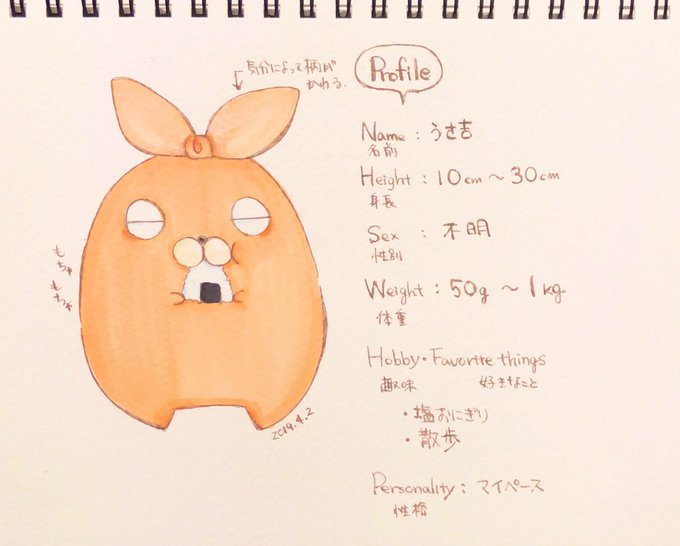 気分によって柄が
かわる.
Profile
Name : うさ吉
名前
Height : 10cm ~ 30cm
身長
Sex : 不明
性別
Weight : 50g ~ 1kg
体重
Hobby・Favorite things
趣味 好きなこと
・塩おにぎり
・散歩
Personality : マイペース
性格
もちゃ
もちゃ
2019.4.2